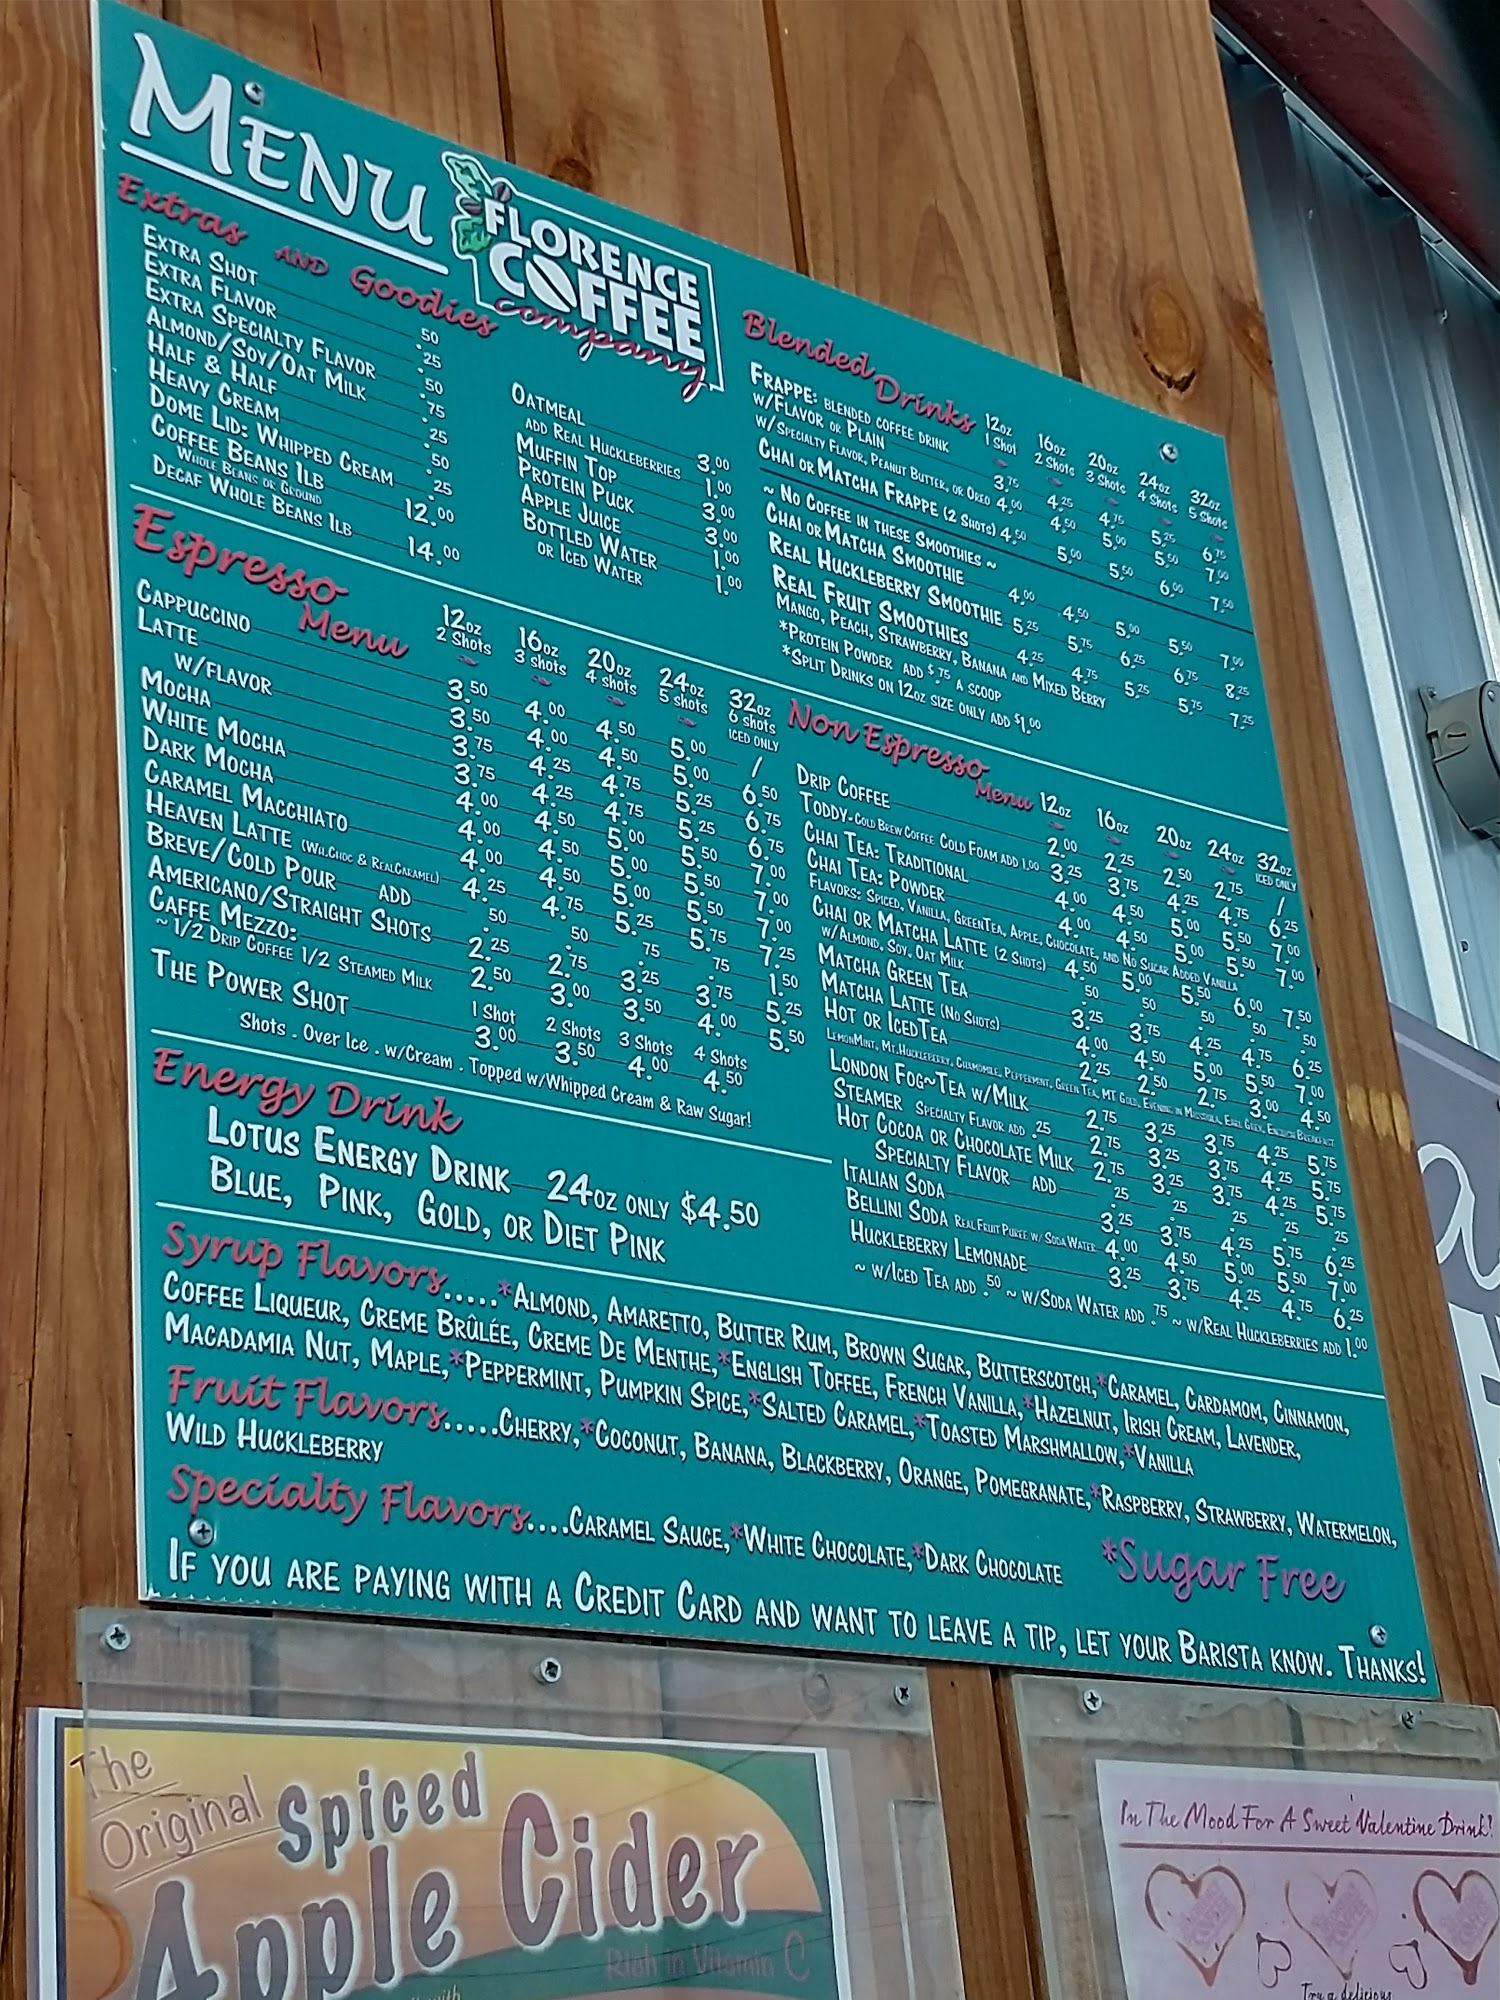 MENU
FLORENCE
COFFEE
company
Extras AND Goodies
EXTRA SHOT .50
EXTRA FLAVOR .25
EXTRA SPECIALTY FLAVOR .50
ALMOND/SOY/OAT MILK .75
HALF & HALF .25
HEAVY CREAM .50
DOME LID: WHIPPED CREAM .25
COFFEE BEANS 1LB 12.00
WHOLE BEANS OR GROUND
DECAF WHOLE BEANS 1LB 14.00
OATMEAL 3.00
ADD REAL HUCKLEBERRIES 1.00
MUFFIN TOP 3.00
PROTEIN PUCK 3.00
APPLE JUICE 1.00
BOTTLED WATER 1.00
OR ICED WATER
Blended Drinks
12oz 16oz 20oz 24oz 32oz
1 Shot 2 Shots 3 Shots 4 Shots 5 Shots
FRAPPE: BLENDED COFFEE DRINK
W/FLAVOR OR PLAIN 3.75 4.25 4.75 5.25 6.75
W/SPECIALTY FLAVOR, PEANUT BUTTER, OR OREO 4.00 4.50 5.00 5.50 7.00
CHAI OR MATCHA FRAPPE (2 SHOTS) 4.50 5.00 5.50 6.00 7.50
~ NO COFFEE IN THESE SMOOTHIES ~
CHAI OR MATCHA SMOOTHIE 4.00 4.50 5.00 5.50 7.00
REAL HUCKLEBERRY SMOOTHIE 5.25 5.75 6.25 6.75 8.25
REAL FRUIT SMOOTHIES 4.25 4.75 5.25 5.75 7.25
MANGO, PEACH, STRAWBERRY, BANANA AND MIXED BERRY
*PROTEIN POWDER ADD $.75 A SCOOP
*SPLIT DRINKS ON 12OZ SIZE ONLY ADD $1.00
Espresso Menu
12oz 16oz 20oz 24oz 32oz
2 Shots 3 shots 4 shots 5 shots 6 shots
ICED ONLY
CAPPUCCINO 3.50 4.00 4.50 5.00 /
LATTE 3.50 4.00 4.50 5.00 6.50
W/FLAVOR 3.75 4.25 4.75 5.25 6.75
MOCHA 3.75 4.25 4.75 5.25 6.75
WHITE MOCHA 4.00 4.50 5.00 5.50 7.00
DARK MOCHA 4.00 4.50 5.00 5.50 7.00
CARAMEL MACCHIATO 4.00 4.50 5.00 5.50 7.00
HEAVEN LATTE (WH.CHOC & REALCARAMEL) 4.25 4.75 5.25 5.75 7.25
BREVE/COLD POUR ADD .50 .50 .75 .75 1.50
AMERICANO/STRAIGHT SHOTS 2.25 2.75 3.25 3.75 5.25
CAFFE MEZZO: 2.50 3.00 3.50 4.00 5.50
~1/2 DRIP COFFEE 1/2 STEAMED MILK
1 Shot 2 Shots 3 Shots 4 Shots
THE POWER SHOT 3.00 3.50 4.00 4.50
Shots . Over Ice . w/Cream . Topped w/Whipped Cream & Raw Sugar!
Non Espresso Menu
12oz 16oz 20oz 24oz 32oz
ICED ONLY
DRIP COFFEE 2.00 2.25 2.50 2.75 /
TODDY-COLD BREW COFFEE COLD FOAM ADD 1.00 3.25 3.75 4.25 4.75 6.25
CHAI TEA: TRADITIONAL 4.00 4.50 5.00 5.50 7.00
CHAI TEA: POWDER 4.00 4.50 5.00 5.50 7.00
FLAVORS: SPICED, VANILLA, GREENTEA, APPLE, CHOCOLATE, AND NO SUGAR ADDED VANILLA
CHAI OR MATCHA LATTE (2 SHOTS) 4.50 5.00 5.50 6.00 7.50
W/ALMOND, SOY, OAT MILK .50 .50 .50 .50 .50
MATCHA GREEN TEA 3.25 3.75 4.25 4.75 6.25
MATCHA LATTE (NO SHOTS) 4.00 4.50 5.00 5.50 7.00
HOT OR ICEDTEA 2.25 2.50 2.75 3.00 4.50
LEMONMINT, MT.HUCKLEBERRY, CHAMOMILE, PEPPERMINT, GREEN TEA, MT GOLD, EVENING IN MISSOULA, EARL GREY, ENGLISH BREAKFAST
LONDON FOG~TEA W/MILK 2.75 3.25 3.75 4.25 5.75
STEAMER SPECIALTY FLAVOR ADD .25 2.75 3.25 3.75 4.25 5.75
HOT COCOA OR CHOCOLATE MILK 2.75 3.25 3.75 4.25 5.75
SPECIALTY FLAVOR ADD .25 .25 .25 .25 .25
ITALIAN SODA 3.25 3.75 4.25 5.75 6.25
BELLINI SODA REAL FRUIT PUREE W/ SODA WATER 4.00 4.50 5.00 5.50 7.00
HUCKLEBERRY LEMONADE 3.25 3.75 4.25 4.75 6.25
~ W/ICED TEA ADD .50 ~ W/SODA WATER ADD .75 ~ W/REAL HUCKLEBERRIES ADD 1.00
Energy Drink
LOTUS ENERGY DRINK 24OZ ONLY $4.50
BLUE, PINK, GOLD, OR DIET PINK
Syrup Flavors.....*ALMOND, AMARETTO, BUTTER RUM, BROWN SUGAR, BUTTERSCOTCH,*CARAMEL, CARDAMOM, CINNAMON,
COFFEE LIQUEUR, CREME BRÛLÉE, CREME DE MENTHE,*ENGLISH TOFFEE, FRENCH VANILLA,*HAZELNUT, IRISH CREAM, LAVENDER,
MACADAMIA NUT, MAPLE,*PEPPERMINT, PUMPKIN SPICE,*SALTED CARAMEL,*TOASTED MARSHMALLOW,*VANILLA
Fruit Flavors.....CHERRY,*COCONUT, BANANA, BLACKBERRY, ORANGE, POMEGRANATE,*RASPBERRY, STRAWBERRY, WATERMELON,
WILD HUCKLEBERRY
Specialty Flavors....CARAMEL SAUCE,*WHITE CHOCOLATE,*DARK CHOCOLATE *Sugar Free
IF YOU ARE PAYING WITH A CREDIT CARD AND WANT TO LEAVE A TIP, LET YOUR BARISTA KNOW. THANKS!
The
Original Spiced
Apple Cider
Rich in Vitamin C
with
In The Mood For A Sweet Valentine Drink!
Try a delicious